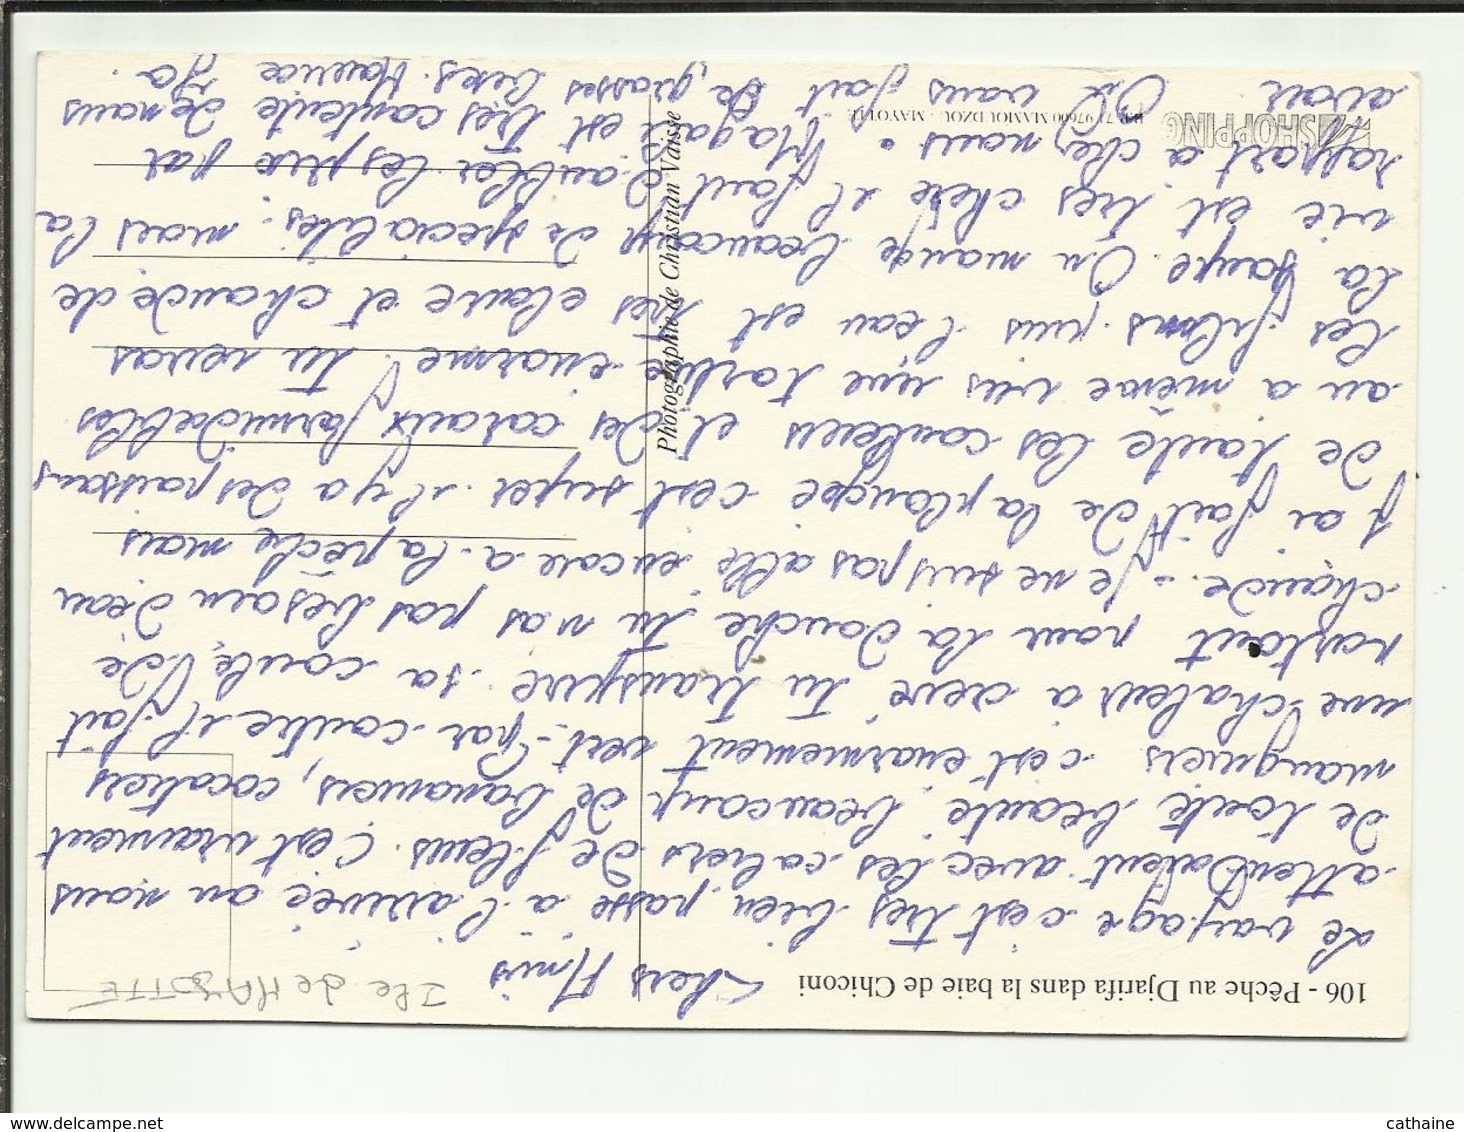 106 - Pêche au Djarifa dans la baie de Chiconi
Ile de MAYOTTE
Chers Amis
Le voyage c'est très bien passe à l'arrivée au nous
attendaient avec les coliers de fleurs. C'est vraiment
de toute beauté, beaucoup de bananiers, cocotiers
manguiers c'est enormement vert - par contre il fait
une chaleur a crevé tu transpire sa coule, de
partout pour la douche tu n'as pas besoin d'eau
chaude - je ne suis pas allé encore a la pêche mais
j'ai fait de la plongée c'est super il y a des poissons
de toute les couleurs et des coraux formidables
on a même vus une tortue enorme. tu veras
les films puis l'eau est très claire et chaude de
la soupe. On mange beaucoup de spécialités. mais la
vie est très chère il faut doubler les prix par
rapport a chez nous. Magali est très contente de nous
avoir On vous fait de grosses bises. Maurice
Jo
Photographie de Christian Vaisse
SHOPPING
B.P. 71 97600 MAMOUDZOU - MAYOTTE
cathaine